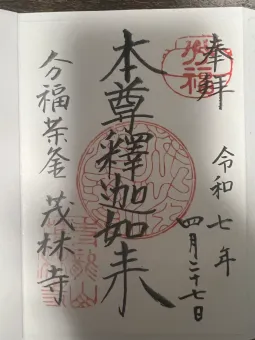 奉拝
令和七年
四月二十七日
本尊釋迦如来
分福茶釜 茂林寺